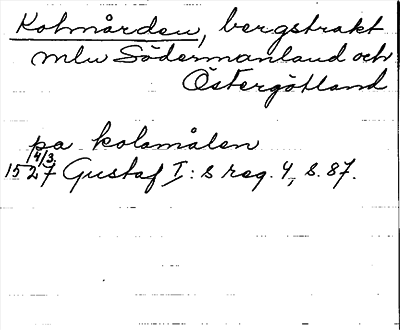 Kolmården, bergstrakt
mlu Södermanland och
Östergötland
pa kolamålen
14/3
1527 Gustaf I:s reg. 4, s. 87.